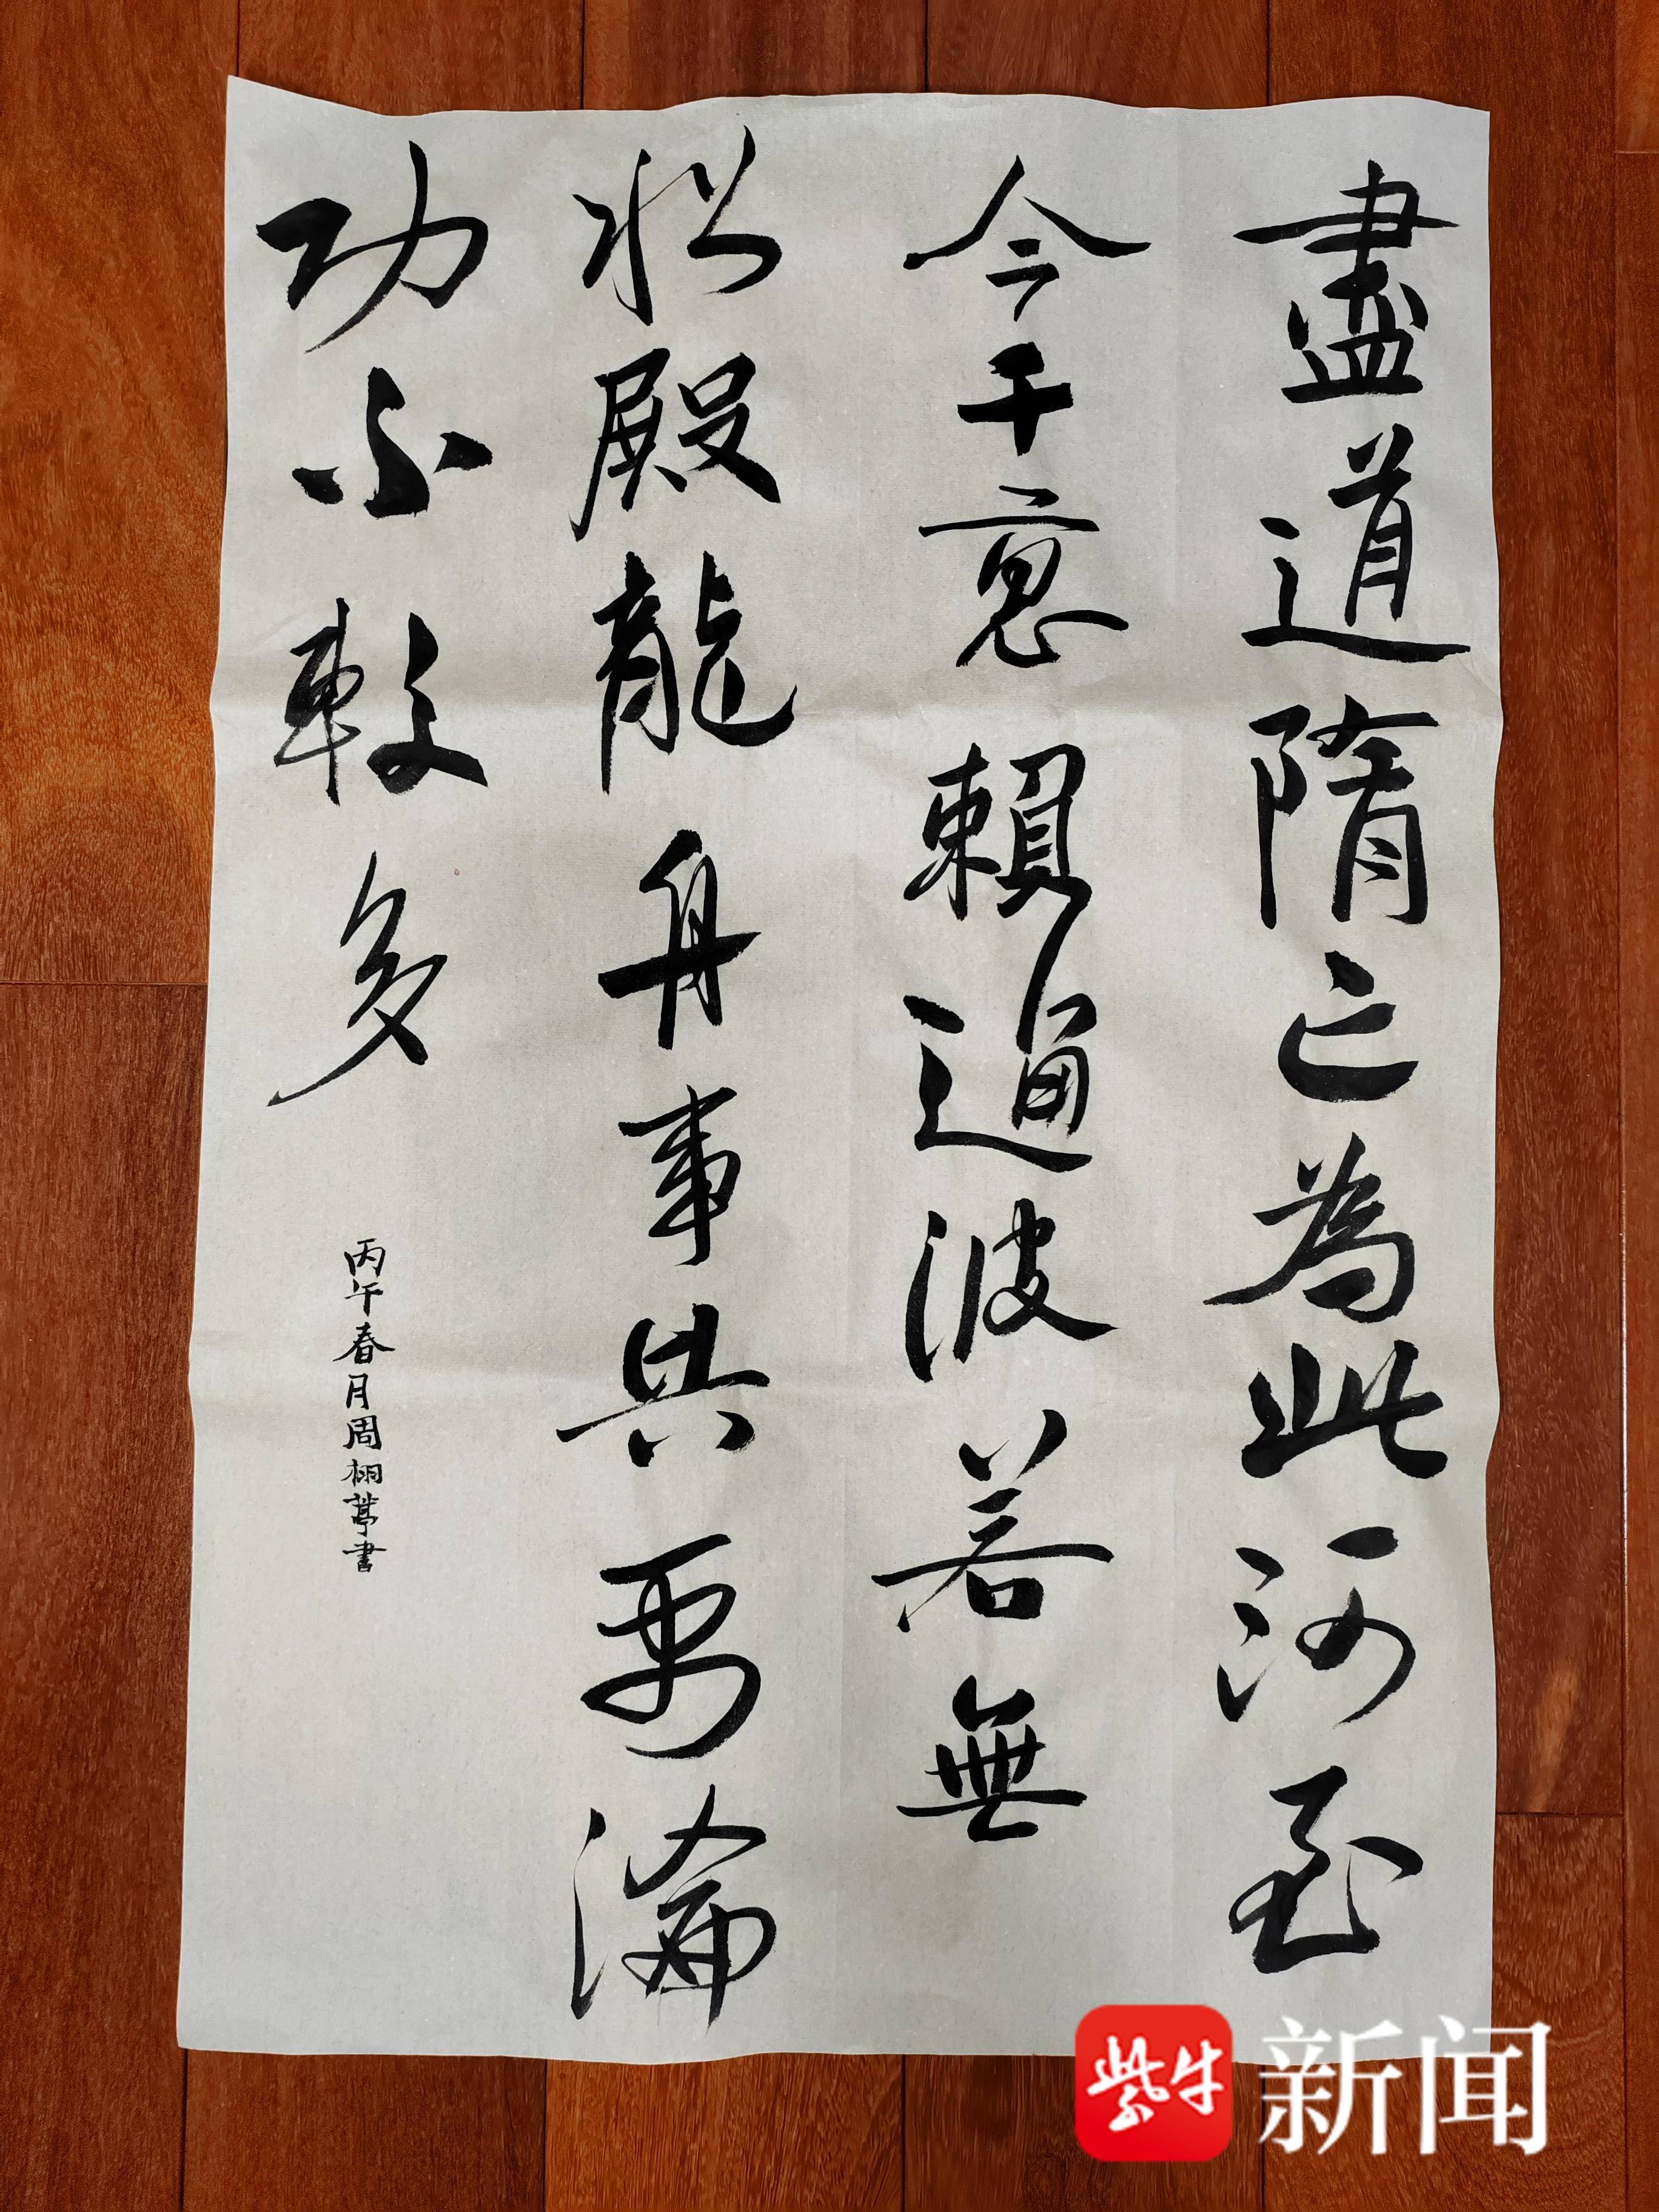 盡道隋亡為此河至
今千意賴通波若無
松殿龍舟事共禹論
功不較多
丙午春月周栩葶書
紫牛新闻